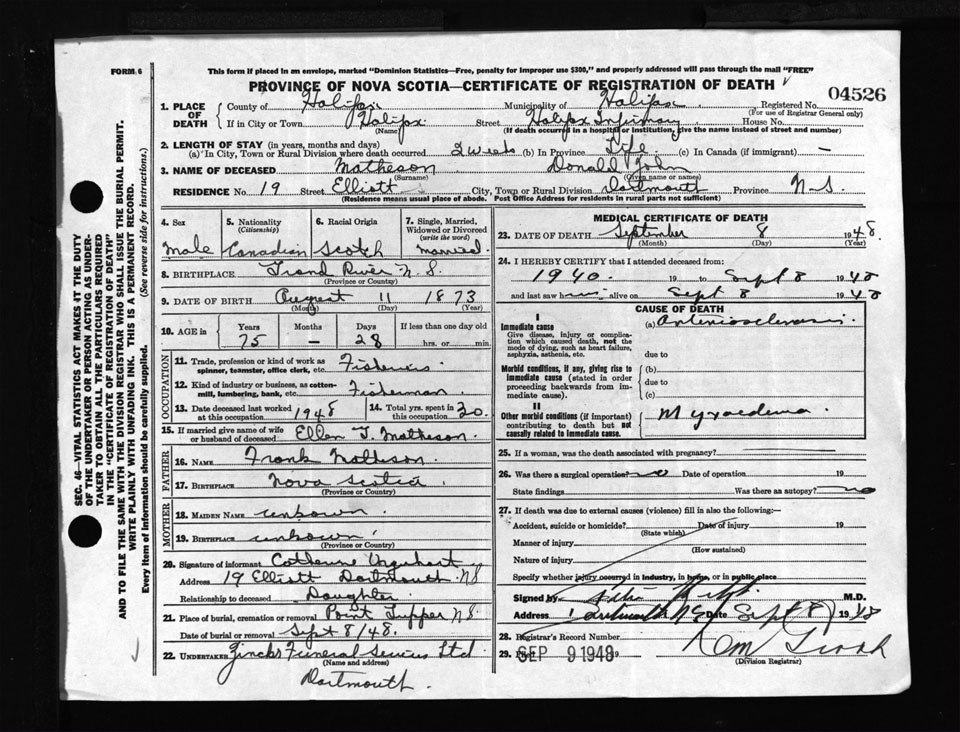 FORM 6
This form if placed in an envelope, marked "Dominion Statistics—Free, penalty for improper use $300," and properly addressed will pass through the mail "FREE"
PROVINCE OF NOVA SCOTIA—CERTIFICATE OF REGISTRATION OF DEATH
04526
1. PLACE OF DEATH
County of Halifax
Municipality of Halifax
Registered No.
(For use of Registrar General only)
If in City or Town Halifax Street Halifax Infirmary House No.
(Name) (If death occurred in a hospital or institution, give the name instead of street and number)
2. LENGTH OF STAY (in years, months and days)
(a) In City, Town or Rural Division where death occurred 2 weeks (b) In Province Life (c) In Canada (if immigrant) —
3. NAME OF DECEASED Matheson Donald John
(Surname) (Given name or names)
RESIDENCE No. 19 Street Elliott City, Town or Rural Division Dartmouth Province N-S.
(Residence means usual place of abode. Post Office Address for residents in rural parts not sufficient)
4. Sex Male
5. Nationality (Citizenship) Canadian
6. Racial Origin Scotch
7. Single, Married, Widowed or Divorced (write the word) married
8. BIRTHPLACE Grand River N.S
(Province or Country)
9. DATE OF BIRTH August 11 1873
(Month) (Day) (Year)
10. AGE in Years Months Days If less than one day old
75 — 28 hrs. or min.
OCCUPATION
11. Trade, profession or kind of work as spinner, teamster, office clerk, etc.
12. Kind of industry or business, as cotton-mill, lumbering, bank, etc. Fisherman
13. Date deceased last worked at this occupation 1948
14. Total yrs. spent in this occupation 20.
15. If married give name of wife or husband of deceased Ellen J. Matheson
FATHER
16. NAME Frank Matheson.
17. BIRTHPLACE Nova Scotia
(Province or Country)
MOTHER
18. MAIDEN NAME unknown
19. BIRTHPLACE unknown
(Province or Country)
20. Signature of informant Catherine Urquhart
Address 19 Elliott Dartmouth NS
Relationship to deceased Daughter
21. Place of burial, cremation or removal Point Tupper NS
Date of burial or removal Sept 8/48.
22. UNDERTAKER Zincks Funeral Services Ltd
(Name and address)
Dartmouth.
MEDICAL CERTIFICATE OF DEATH
23. DATE OF DEATH September 8 1948.
(Month) (Day) (Year)
24. I HEREBY CERTIFY that I attended deceased from:
1940 19 to Sept 8 1948
and last saw him alive on Sept 8 1948
CAUSE OF DEATH
I
Immediate cause
Give disease, injury or complication which caused death, not the mode of dying, such as heart failure, asphyxia, asthenia, etc.
(a) Arteriosclerosis.
due to
Morbid conditions, if any, giving rise to immediate cause (stated in order proceeding backwards from immediate cause).
(b)
due to
(c)
II
Other morbid conditions (if important) contributing to death but not causally related to immediate cause.
Myxoedema
25. If a woman, was the death associated with pregnancy?
26. Was there a surgical operation? no Date of operation 19
State findings Was there an autopsy? no
27. If death was due to external causes (violence) fill in also the following:—
Accident, suicide or homicide? Date of injury 19
(State which)
Manner of injury
(How sustained)
Nature of injury
Specify whether injury occurred in industry, in home, or in public place
Signed by M.D.
Address Dartmouth N S Date Sept 8 1948
28. Registrar's Record Number
29. SEP 9 1948
(Division Registrar)
SEC. 46—VITAL STATISTICS ACT MAKES IT THE DUTY
OF THE UNDERTAKER OR PERSON ACTING AS UNDER-
TAKER TO OBTAIN ALL THE PARTICULARS REQUIRED
IN THE "CERTIFICATE OF REGISTRATION OF DEATH"
AND TO FILE THE SAME WITH THE DIVISION REGISTRAR WHO SHALL ISSUE THE BURIAL PERMIT.
WRITE PLAINLY WITH UNFADING INK. THIS IS A PERMANENT RECORD.
Every item of information should be carefully supplied. (See reverse side for instructions.)